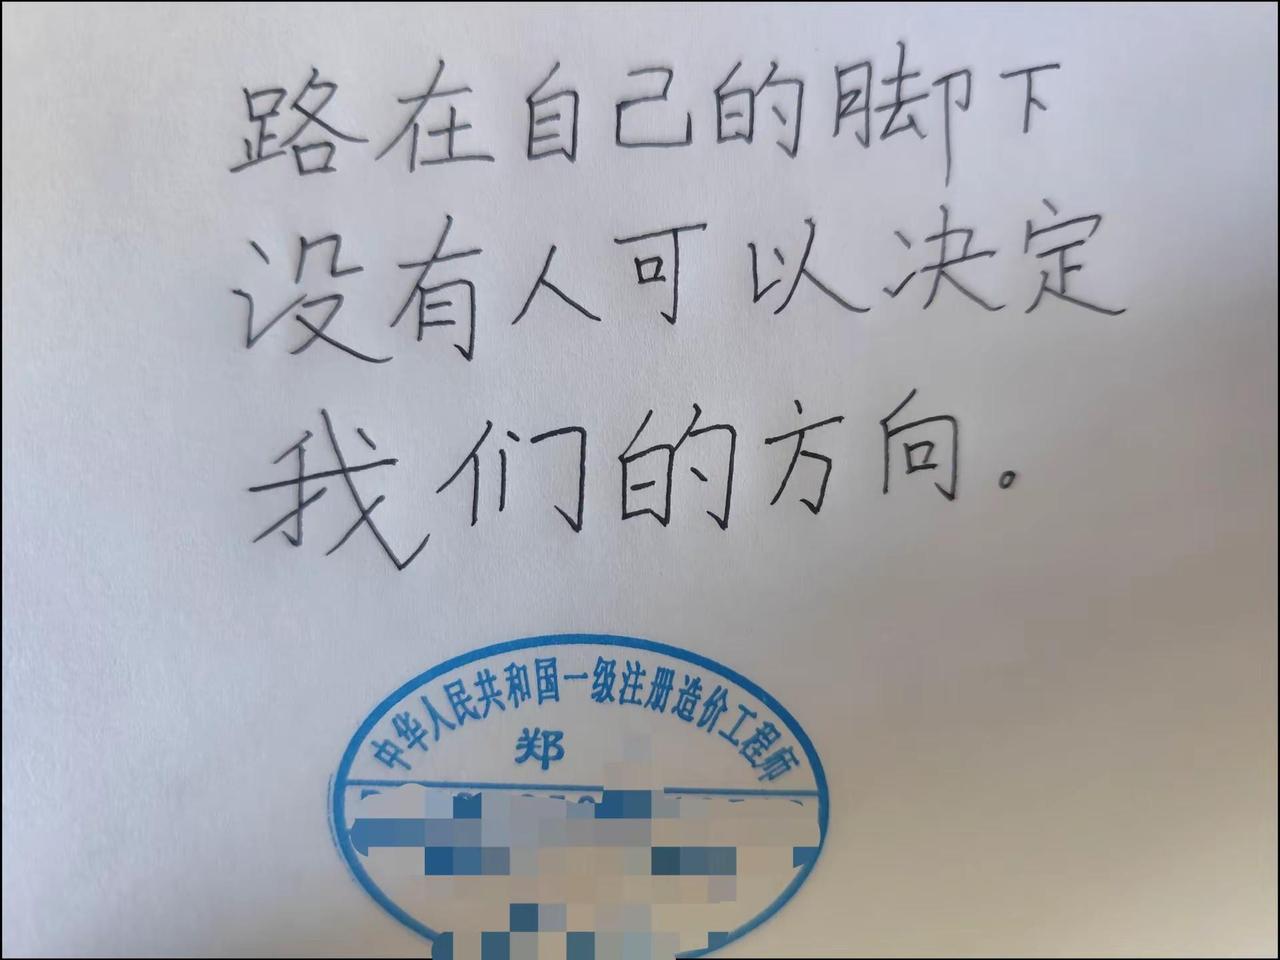 路在自己的脚下
没有人可以决定
我们的方向。
中华人民共和国一级注册造价工程师
郑